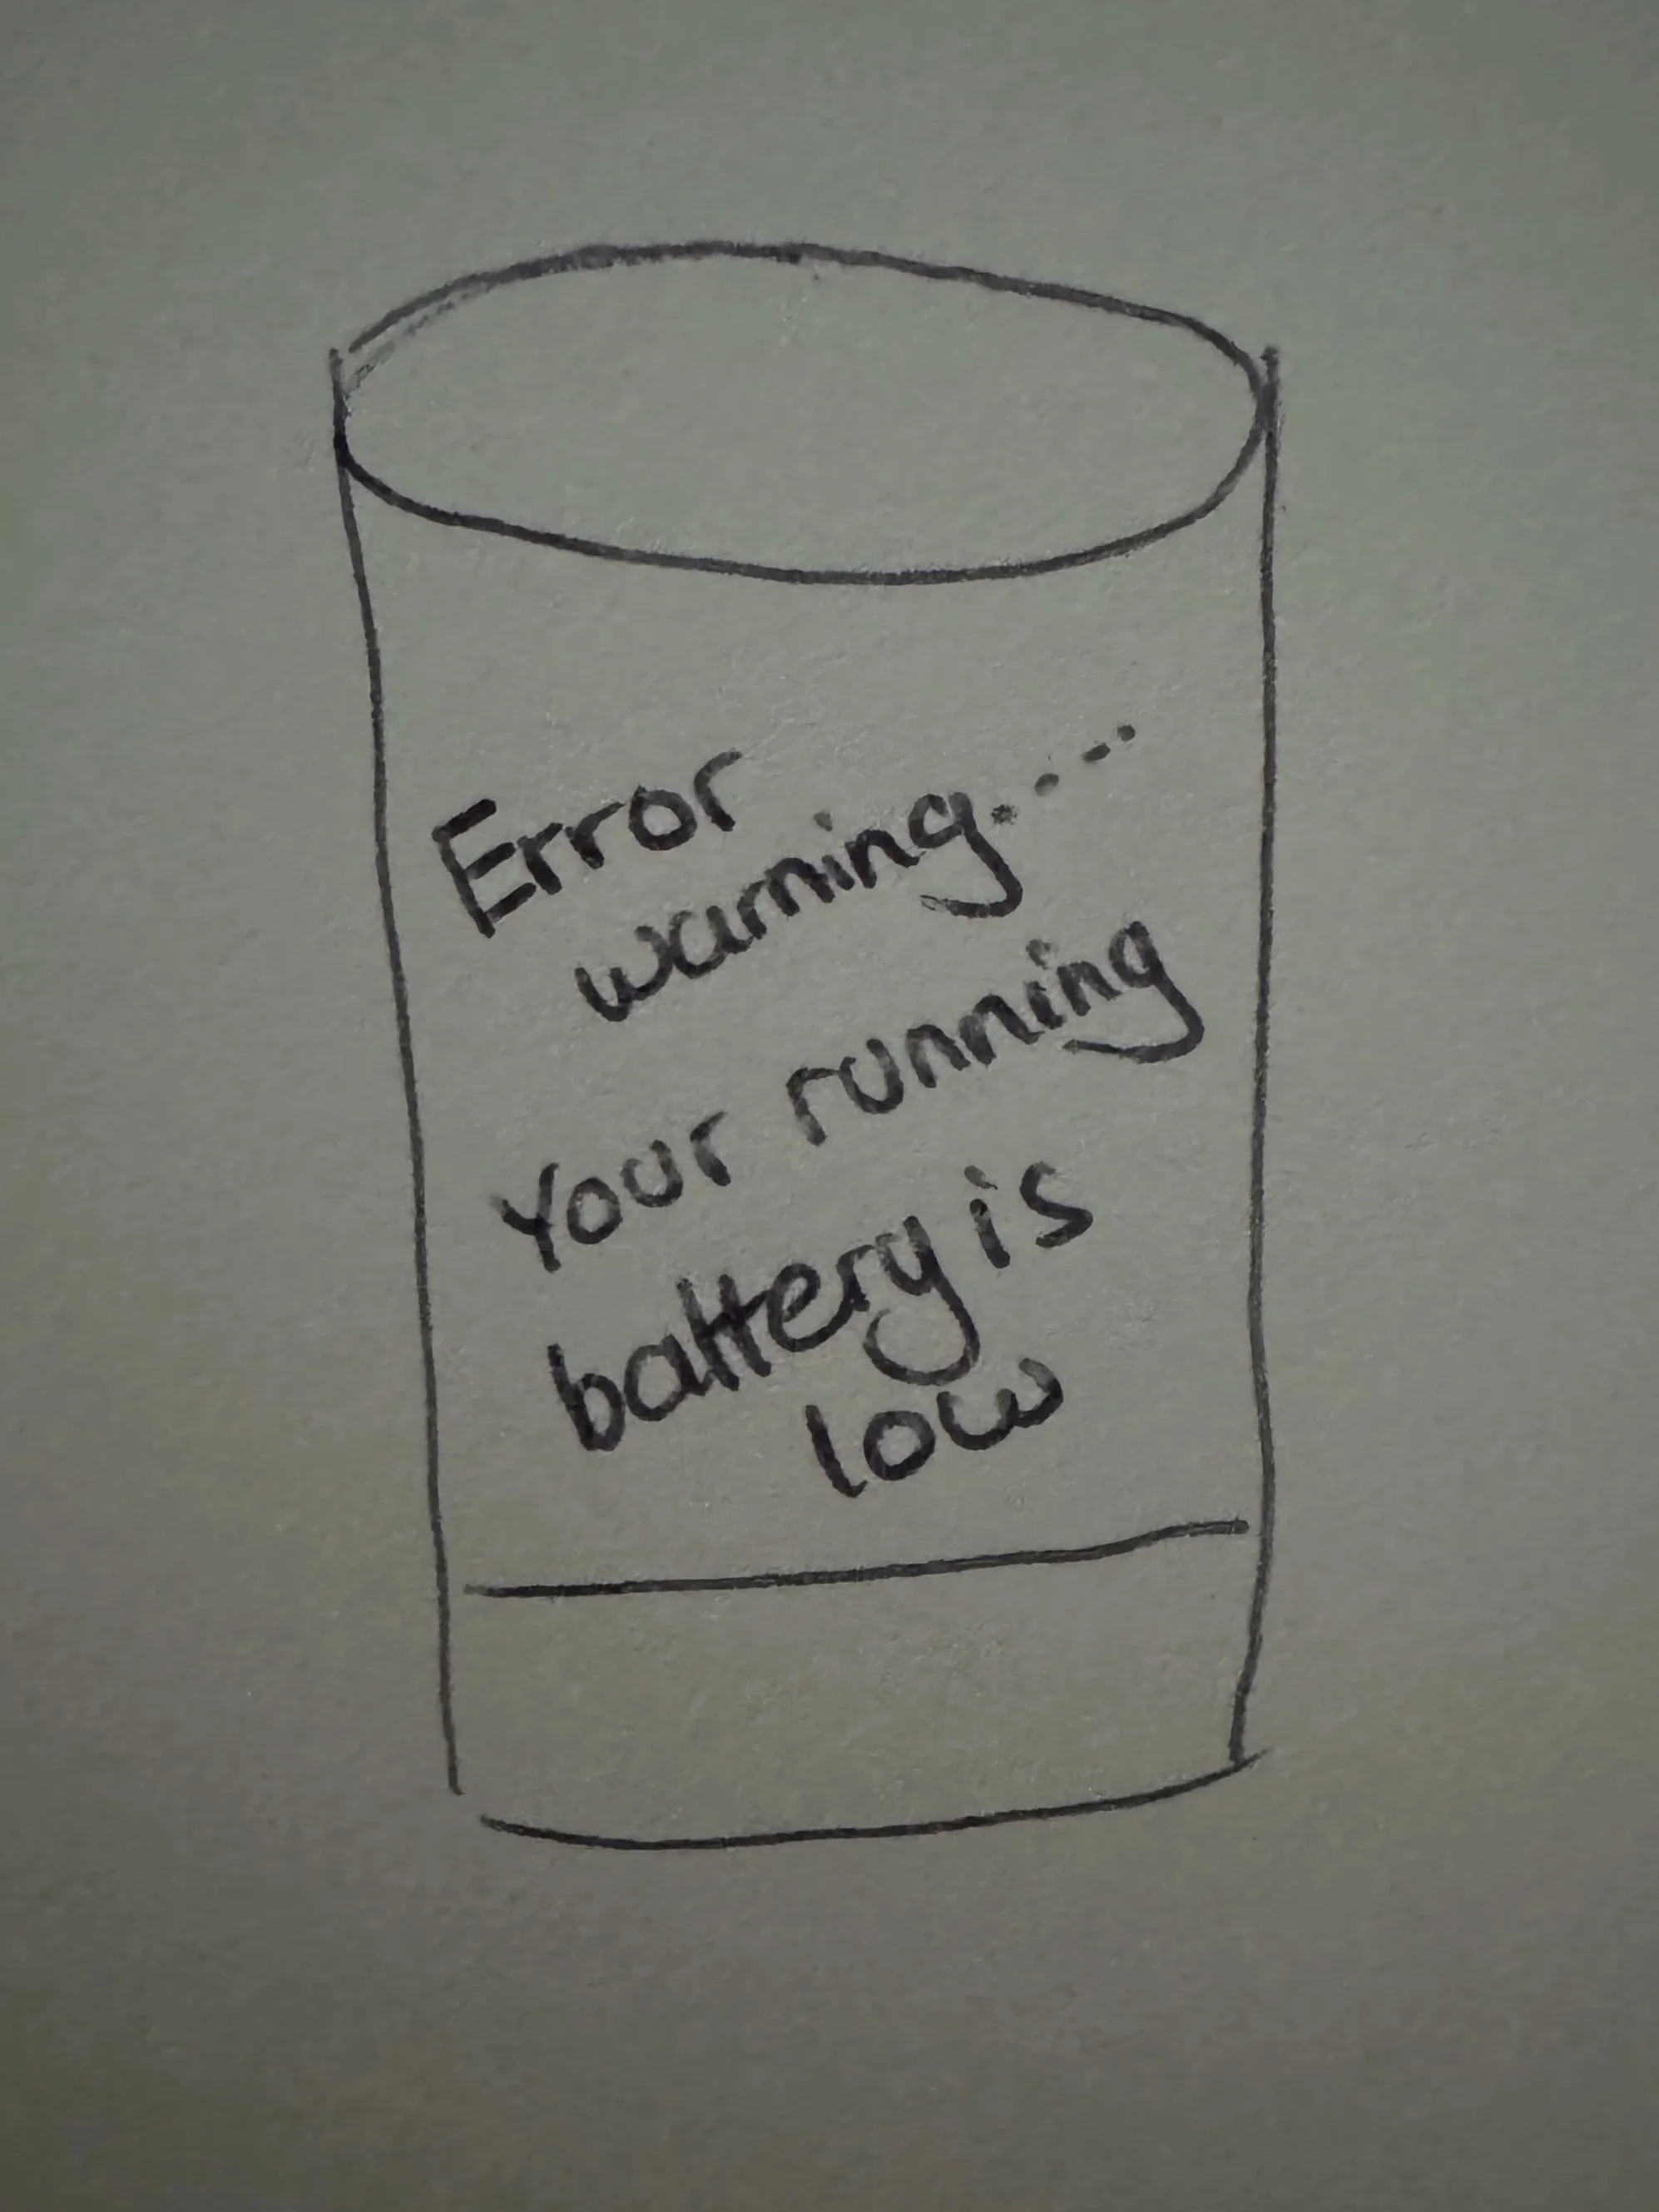 Error
warning....
Your running
battery is
low